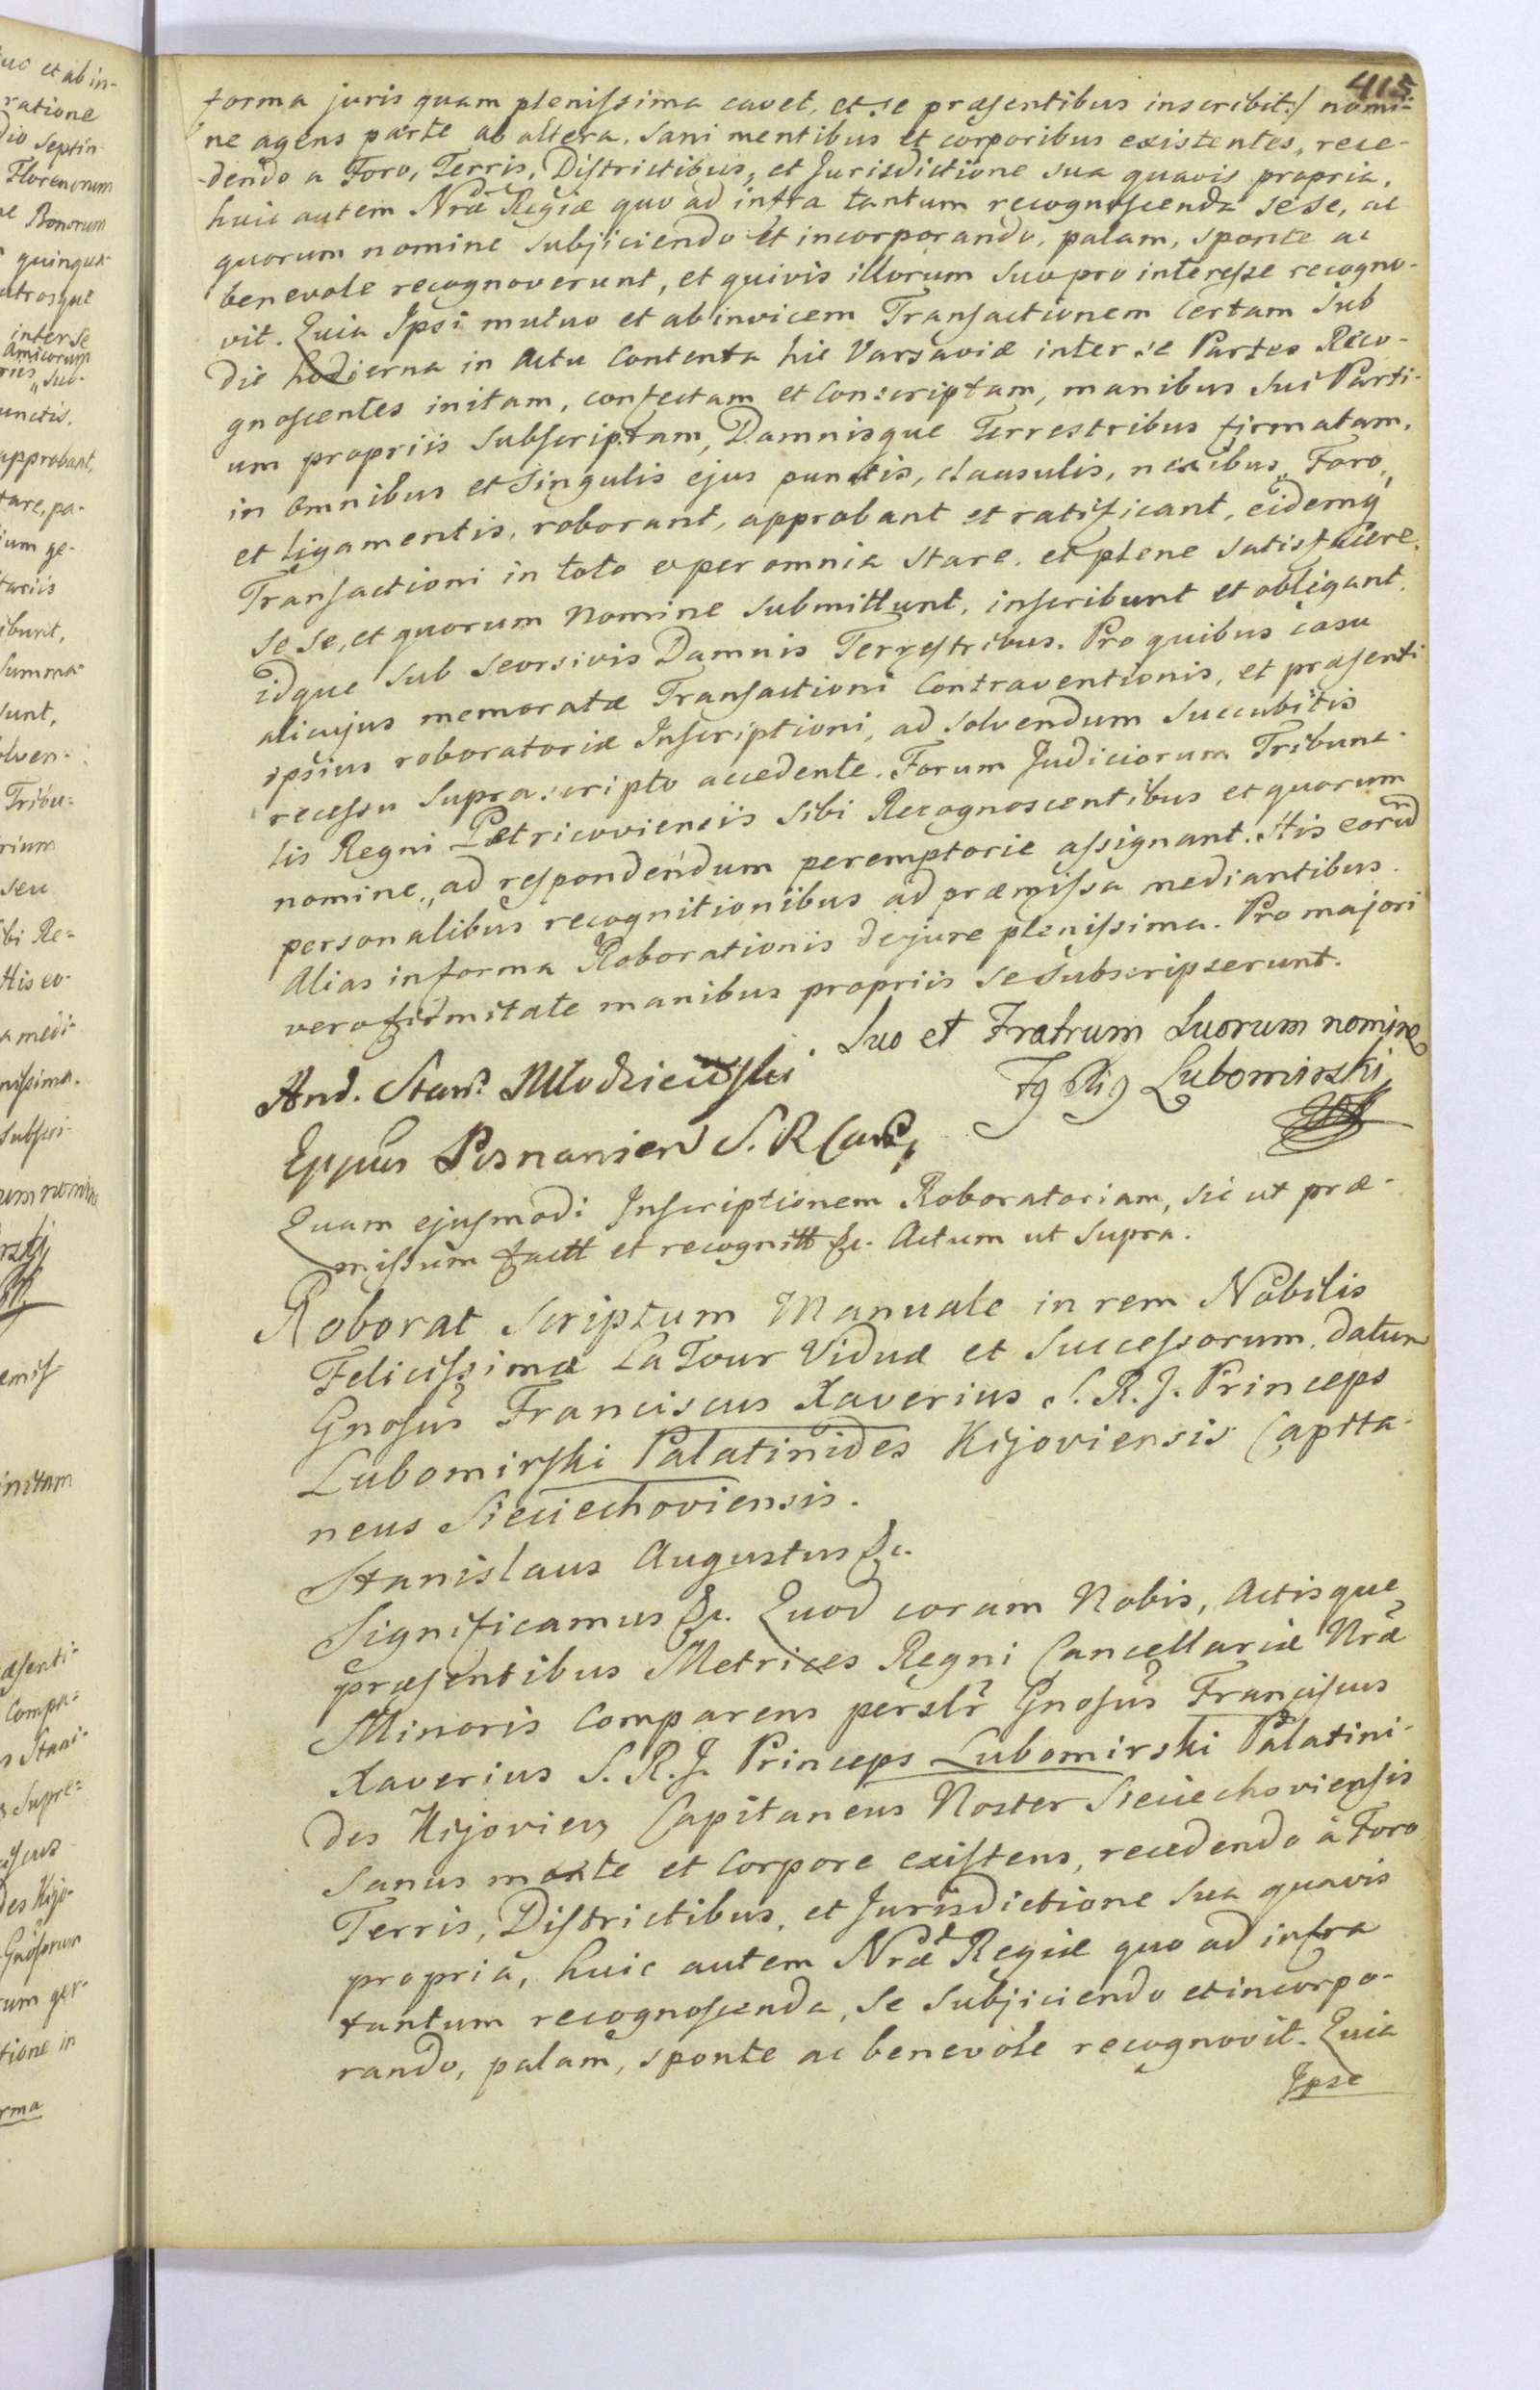 415
forma juris quam plenissima cavet, et se præsentibus inscribit:/ nomi-
ne agens parte ab altera. Sani mentibus et corporibus existentes, rece-
dendo a Foro, Terris, Districtibus, et Jurisdictione sua quavis propria,
huic autem Nræ Regiæ quo ad infra tantum recognoscenda sese, ac
quorum nomine subjiciendo et incorporando, palam, sponte ac
benevole recognoverunt, et quivis illorum suo pro interesse recogno-
vit. Quia Ipsi mutuo et ab invicem Transactionem certam sub
die hodierna in Actu Contenta hic Varsaviæ inter se Partes Reco-
gnoscentes initam, confectam et Conscriptam, manibus sui Parti-
um propriis subscriptam, Damnisque Terrestribus firmatam,
in omnibus et singulis ejus punctis, clausulis, nexibus, Foro,
et ligamentis, roborant, approbant et ratificant, eidemq
Transactioni in toto et per omnia stare, et plene satisfacere
se se, et quorum nomine submittunt, inscribunt et obligant.
idque sub seorsivis Damnis Terrestribus. Pro quibus casu
alicujus memoratæ Transactioni Contraventionis, et præsenti
ipsius roboratoriæ Inscriptioni, ad solvendum succubitis
recessu suprascripto accedente. Forum Judiciorum Tribuna-
lis Regni Petricoviensis sibi Recognoscentibus et quorum
nomine, ad respondendum peremptorie assignant. His eorud
personalibus recognitionibus ad præmissa mediantibus.
Alias in forma Roborationis de jure plenissima. Pro majori
vero firmitate manibus propriis se subscripserunt.
And. Stan. Młodzieiowski Suo et Fratrum Suorum nomine
Lubomirski
Eppus Posnanien S. R Canc,
Quam ejusmodi Inscriptionem Roboratoriam, sic ut præ-
missum factt et recognitt &c. Actum ut supra.
Roborat scriptum Manuale in rem Nobilis
Felicissimæ La Tour Viduæ et Successorum datum
Gnosus Franciscus Xaverius S. R. J. Princeps
Lubomirski Palatinides Kijoviensis Capita-
neus Sieciechoviensis.
Stanislaus Augustus &c.
Significamus &c. Quod coram Nobis, Actisque
præsentibus Metrices Regni Cancellariæ Nræ
Minoris Comparens perslr Gnosus Franciscus
Xaverius S. R. J. Princeps Lubomirski Palatini-
des Kijovien Capitaneus Noster Sieciechoviensis
Sanus mente et Corpore existens, recedendo à Foro
Terris, Districtibus, et Jurisdictione sua quavis
propriâ, huic autem Nræ Regiæ quo ad infra
tantum recognoscenda, se subjiciendo et incorpo-
rando, palam, sponte ac benevole recognovit. Quia
Ipse